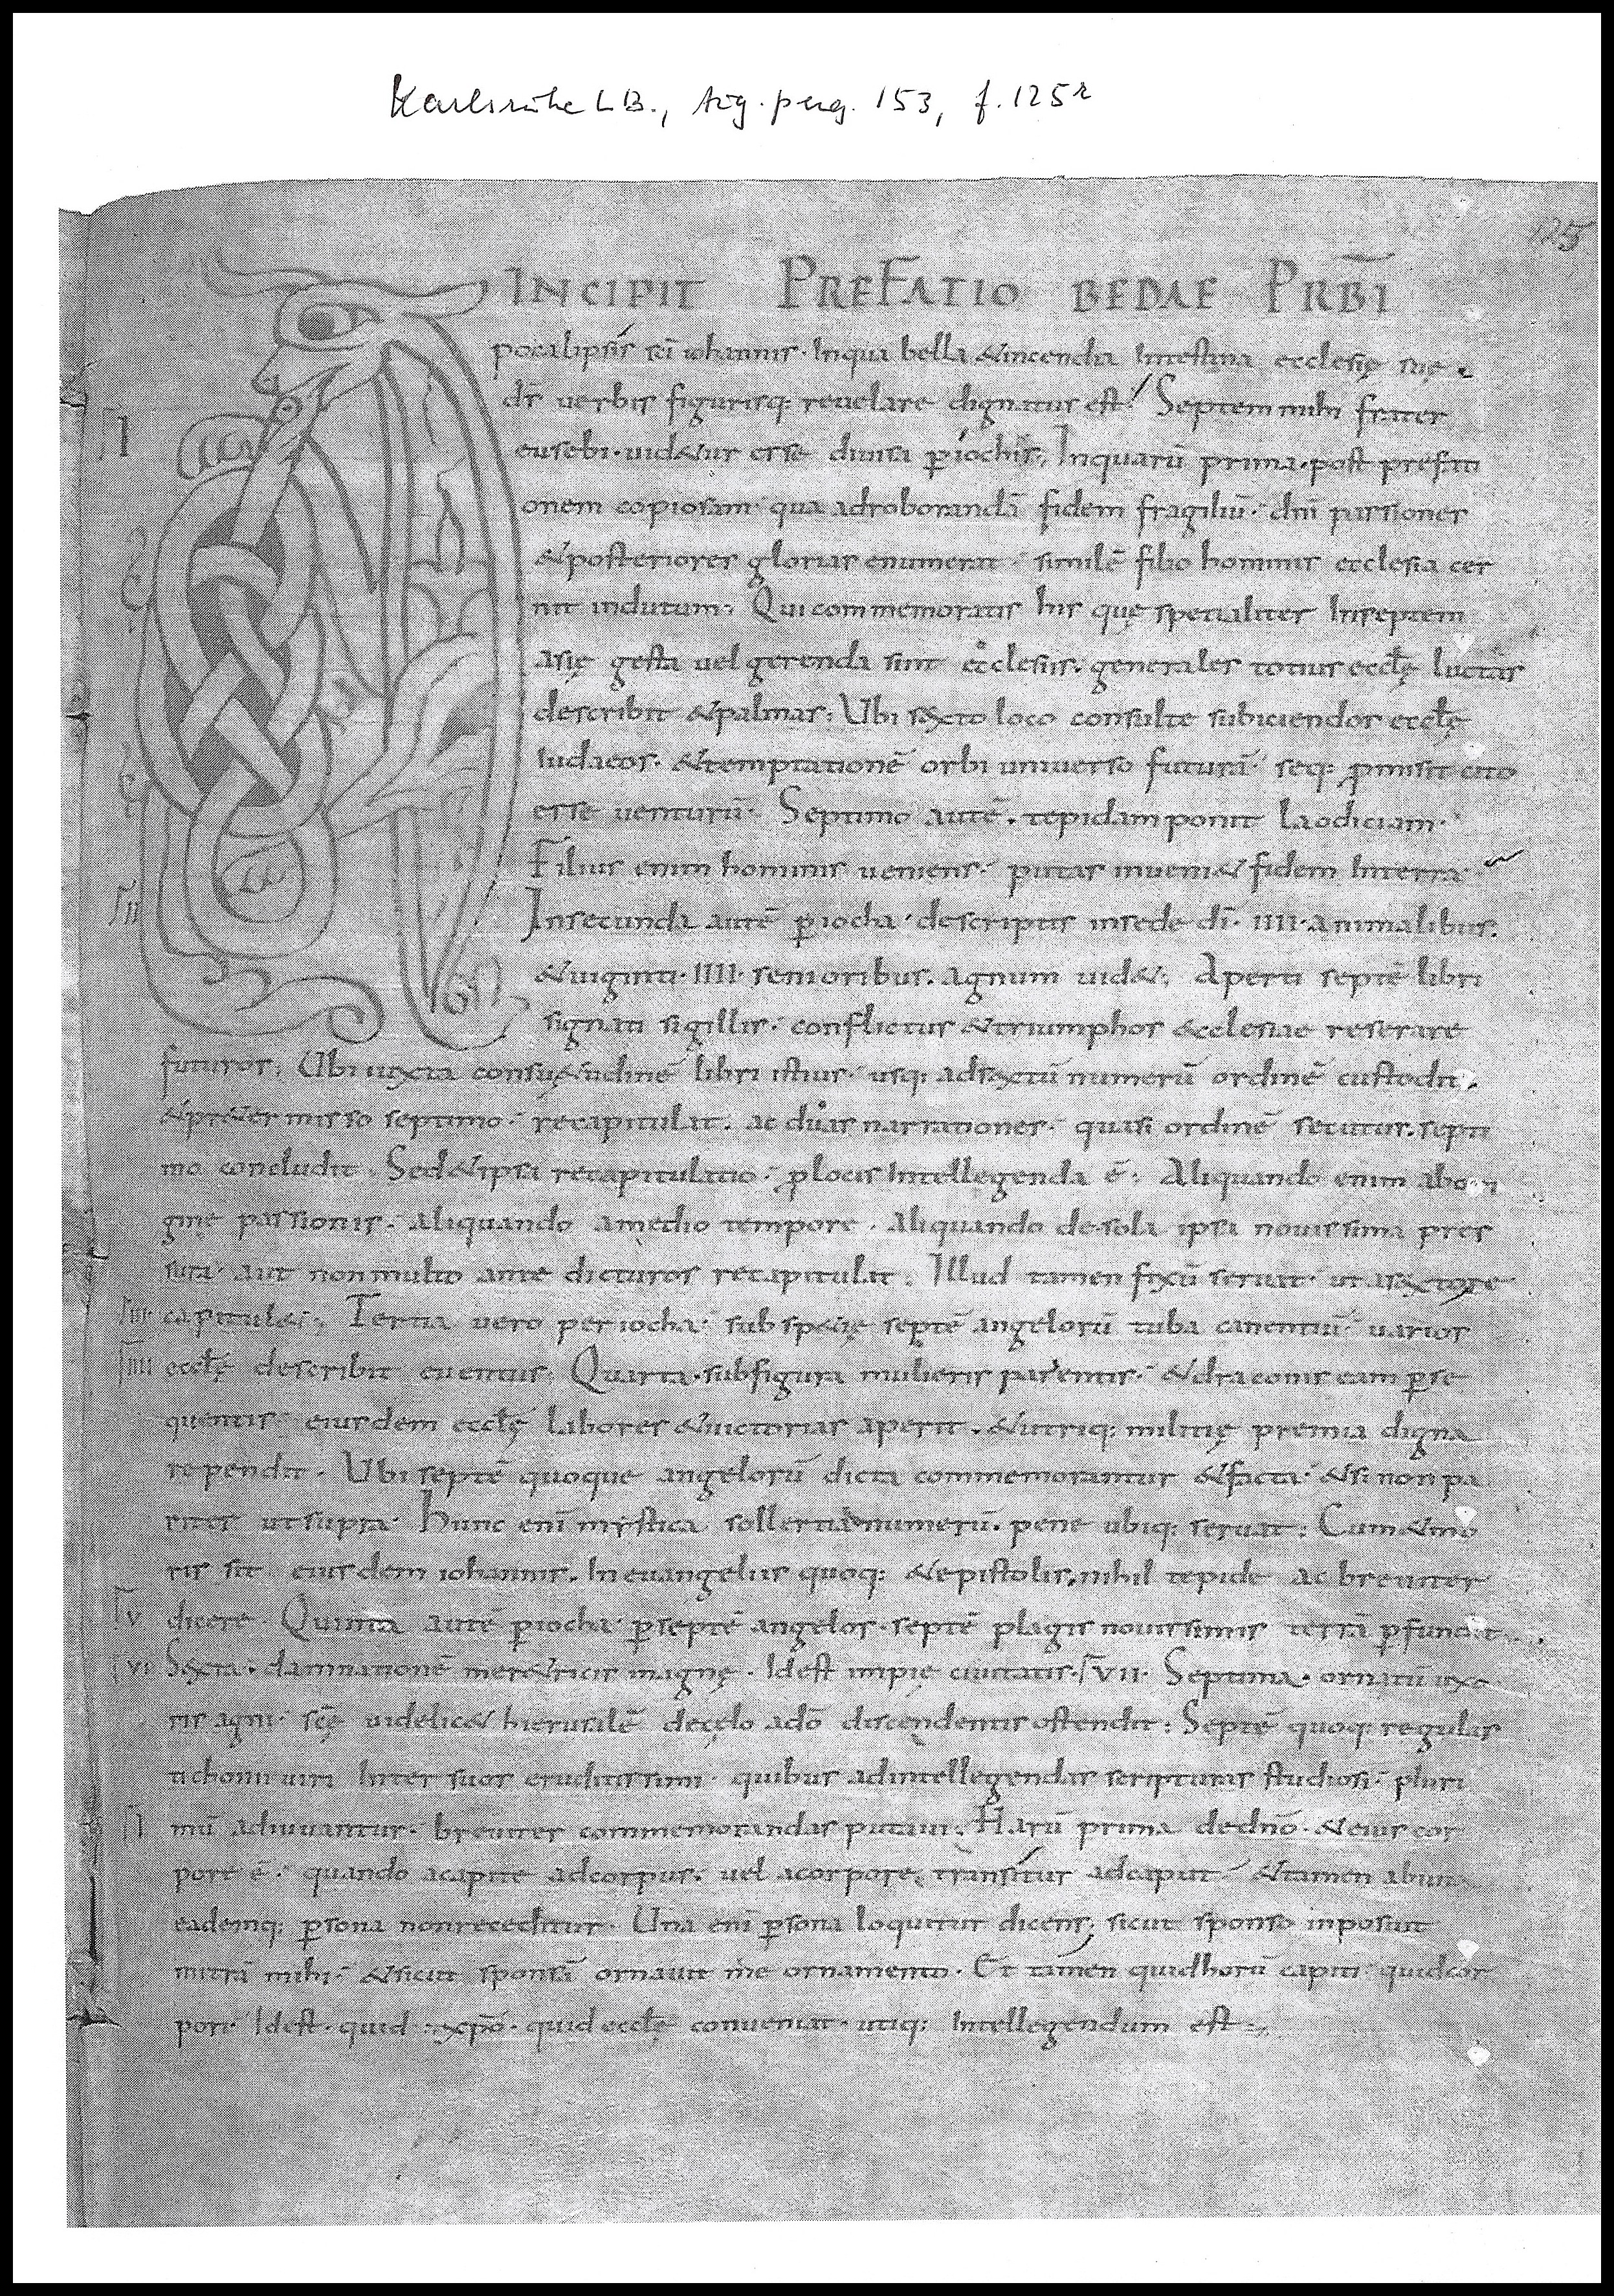 Karlsruhe LB., Aug. perg. 153, f. 125r
125
INCIPIT PREFATIO BEDAE PRB̄I
pocalipsis sc̄i iohannis · Inqua bella &incendia Intestina ecclesię suę ·
d̄s verbis figurisq: reuelare dignatus est · Septem mihi frater
I
eusebi · uid&ur esse diuisa ꝑiochis, Inquarū prima · post prefati
onem copiosam · qua adroborandā fidem fragiliū · dn̄i passiones
&posteriores glorias enumerat · similē filio hominis ecclesia cer
nit indutum; Qui commemoratis his quę spetialiter Inseptem
asię gesta uel gerenda sint ecclesiis. generales totius eccl̄ę luctas
describit &palmas: Ubi sexto loco consulte subiciendos eccl̄ę
iudaeos · &temptationē orbi universo futurā · seq: ꝓmisit cito
esse venturū · Septimo autē · tepidam ponit laodiciam ·
Filius enim hominis veniens · putas inueni& fidem Interra
II
Insecunda autē ꝑiocha · descriptis insede dī · IIII · animalibus.
&uiginti · IIII · senioribus. agnum uid&; Aperti septē libri
signati sigillis · conflictus &triumphos ecclesiae reserare
futuros; Ubi iuxta consu&udinē libri istius · usq: adsextū numerū ordinē custodit,
&pr&ermisso septimo · recapitulat · ac duas narrationes · quasi ordinē secutus. septi
mo concludit Sed&ipsa recapitulatio · ꝑlocis Intellegenda ē; Aliquando enim abori
gine passionis · aliquando amedio tempore · aliquando de sola ipsa nouissima pres
sura · aut non multo ante dicturos recapitulat · Illud tamen fixū seruat · ut asexto re
III capitul&; Tertia vero periocha · sub specię septē angelorū tuba canentiū · uarios
IIII eccl̄ę describit euentus; Quarta · subfigura mulieris parientis · &draconis eam ꝑse
quentis · eiusdem eccl̄ę labores &uictorias aperit · &utriq: militię premia digna
rependit · Ubi septē quoque angelorū dicta commemorantur &facta · &si non pa
riter ut supra · Hunc enī mystica sollertia numerū · pene ubiq: seruat; Cum &mo
ris sit eiusdem iohannis. In euangeliis quoq: &epistolis, nihil tepide ac breuiter
V dicere · Quinta autē ꝑiocha · ꝑseptē angelos · septē plagis nouissimis terrā ꝑfundit
VI Sexta · damnationē mer&ricis magnę · Idest impię ciuitatis · VII · Septima · ornatū uxo
ris agni · sc̄ę uidelic& hierusalē decęlo adō discendentis ostendit; Septē quoq: regulas
tichonii uiri Inter suos eruditissimi · quibus adintellegendas scripturas studiosi · pluri
I mū adiuuantur · breuiter commemorandas putaui. Harū prima dedn̄o · &eius cor
pore ē · quando acapite adcorpus. uel acorpore, transitur adcaput &tamen abuna
eademq: ꝑsona non receditur · Una enī ꝑsona loquitur dicens, sicut sponso inposuit
mitrā mihi · &sicut sponsā ornauit me ornamento · Et tamen quidhorū capiti quidcor
pori Idest · quid xp̄o · quid eccl̄ę conueniat · utiq: Intellegendum est